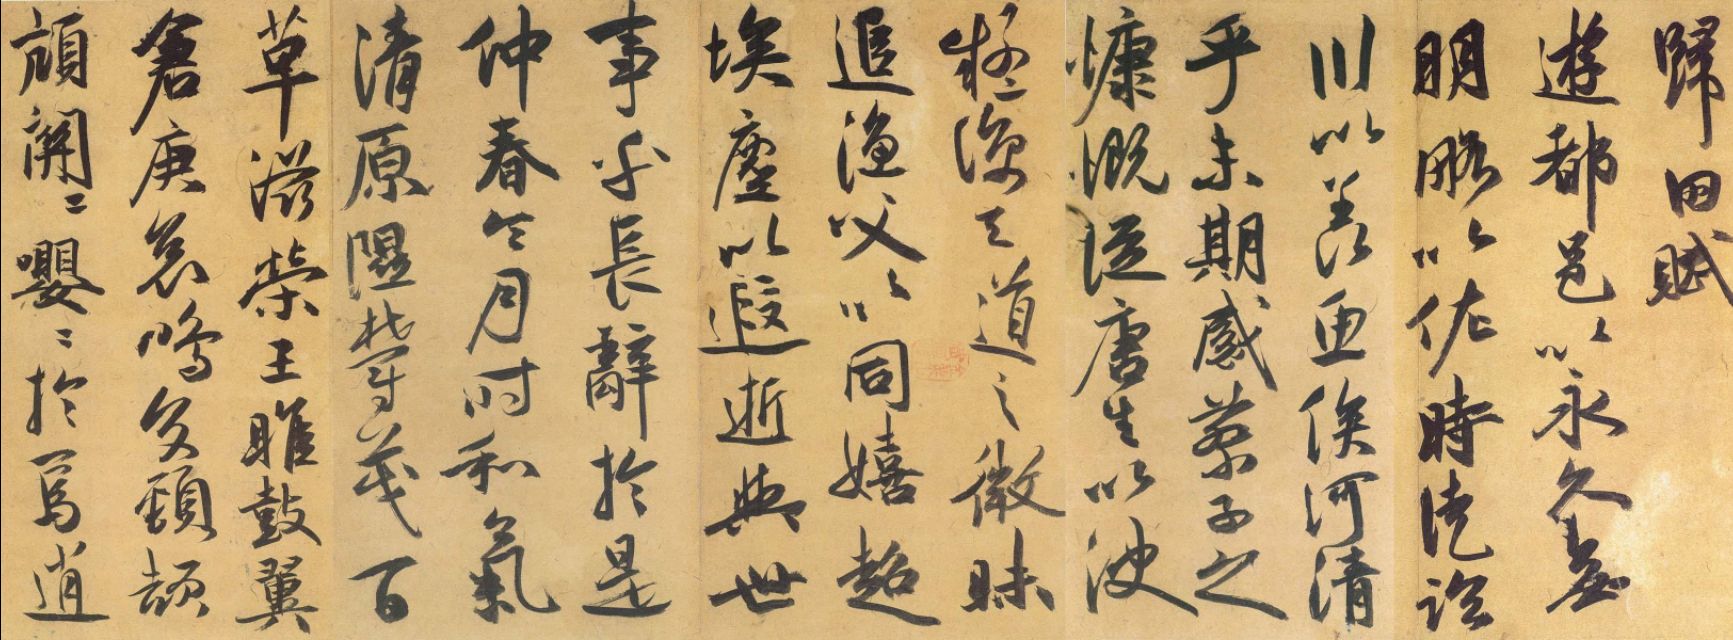 歸田賦
遊都邑以永久無
明略以佐時徒臨
川以羨魚俟河清
乎未期感蔡子之
慷慨從唐生以決
疑諒天道之微昧
追漁父以同嬉超
埃塵以遐逝與世
事乎長辭於是
仲春令月時和氣
清原隰鬱茂百
草滋榮王雎鼓翼
倉庚哀鳴交頸頡
頏關〻嚶〻於焉逍